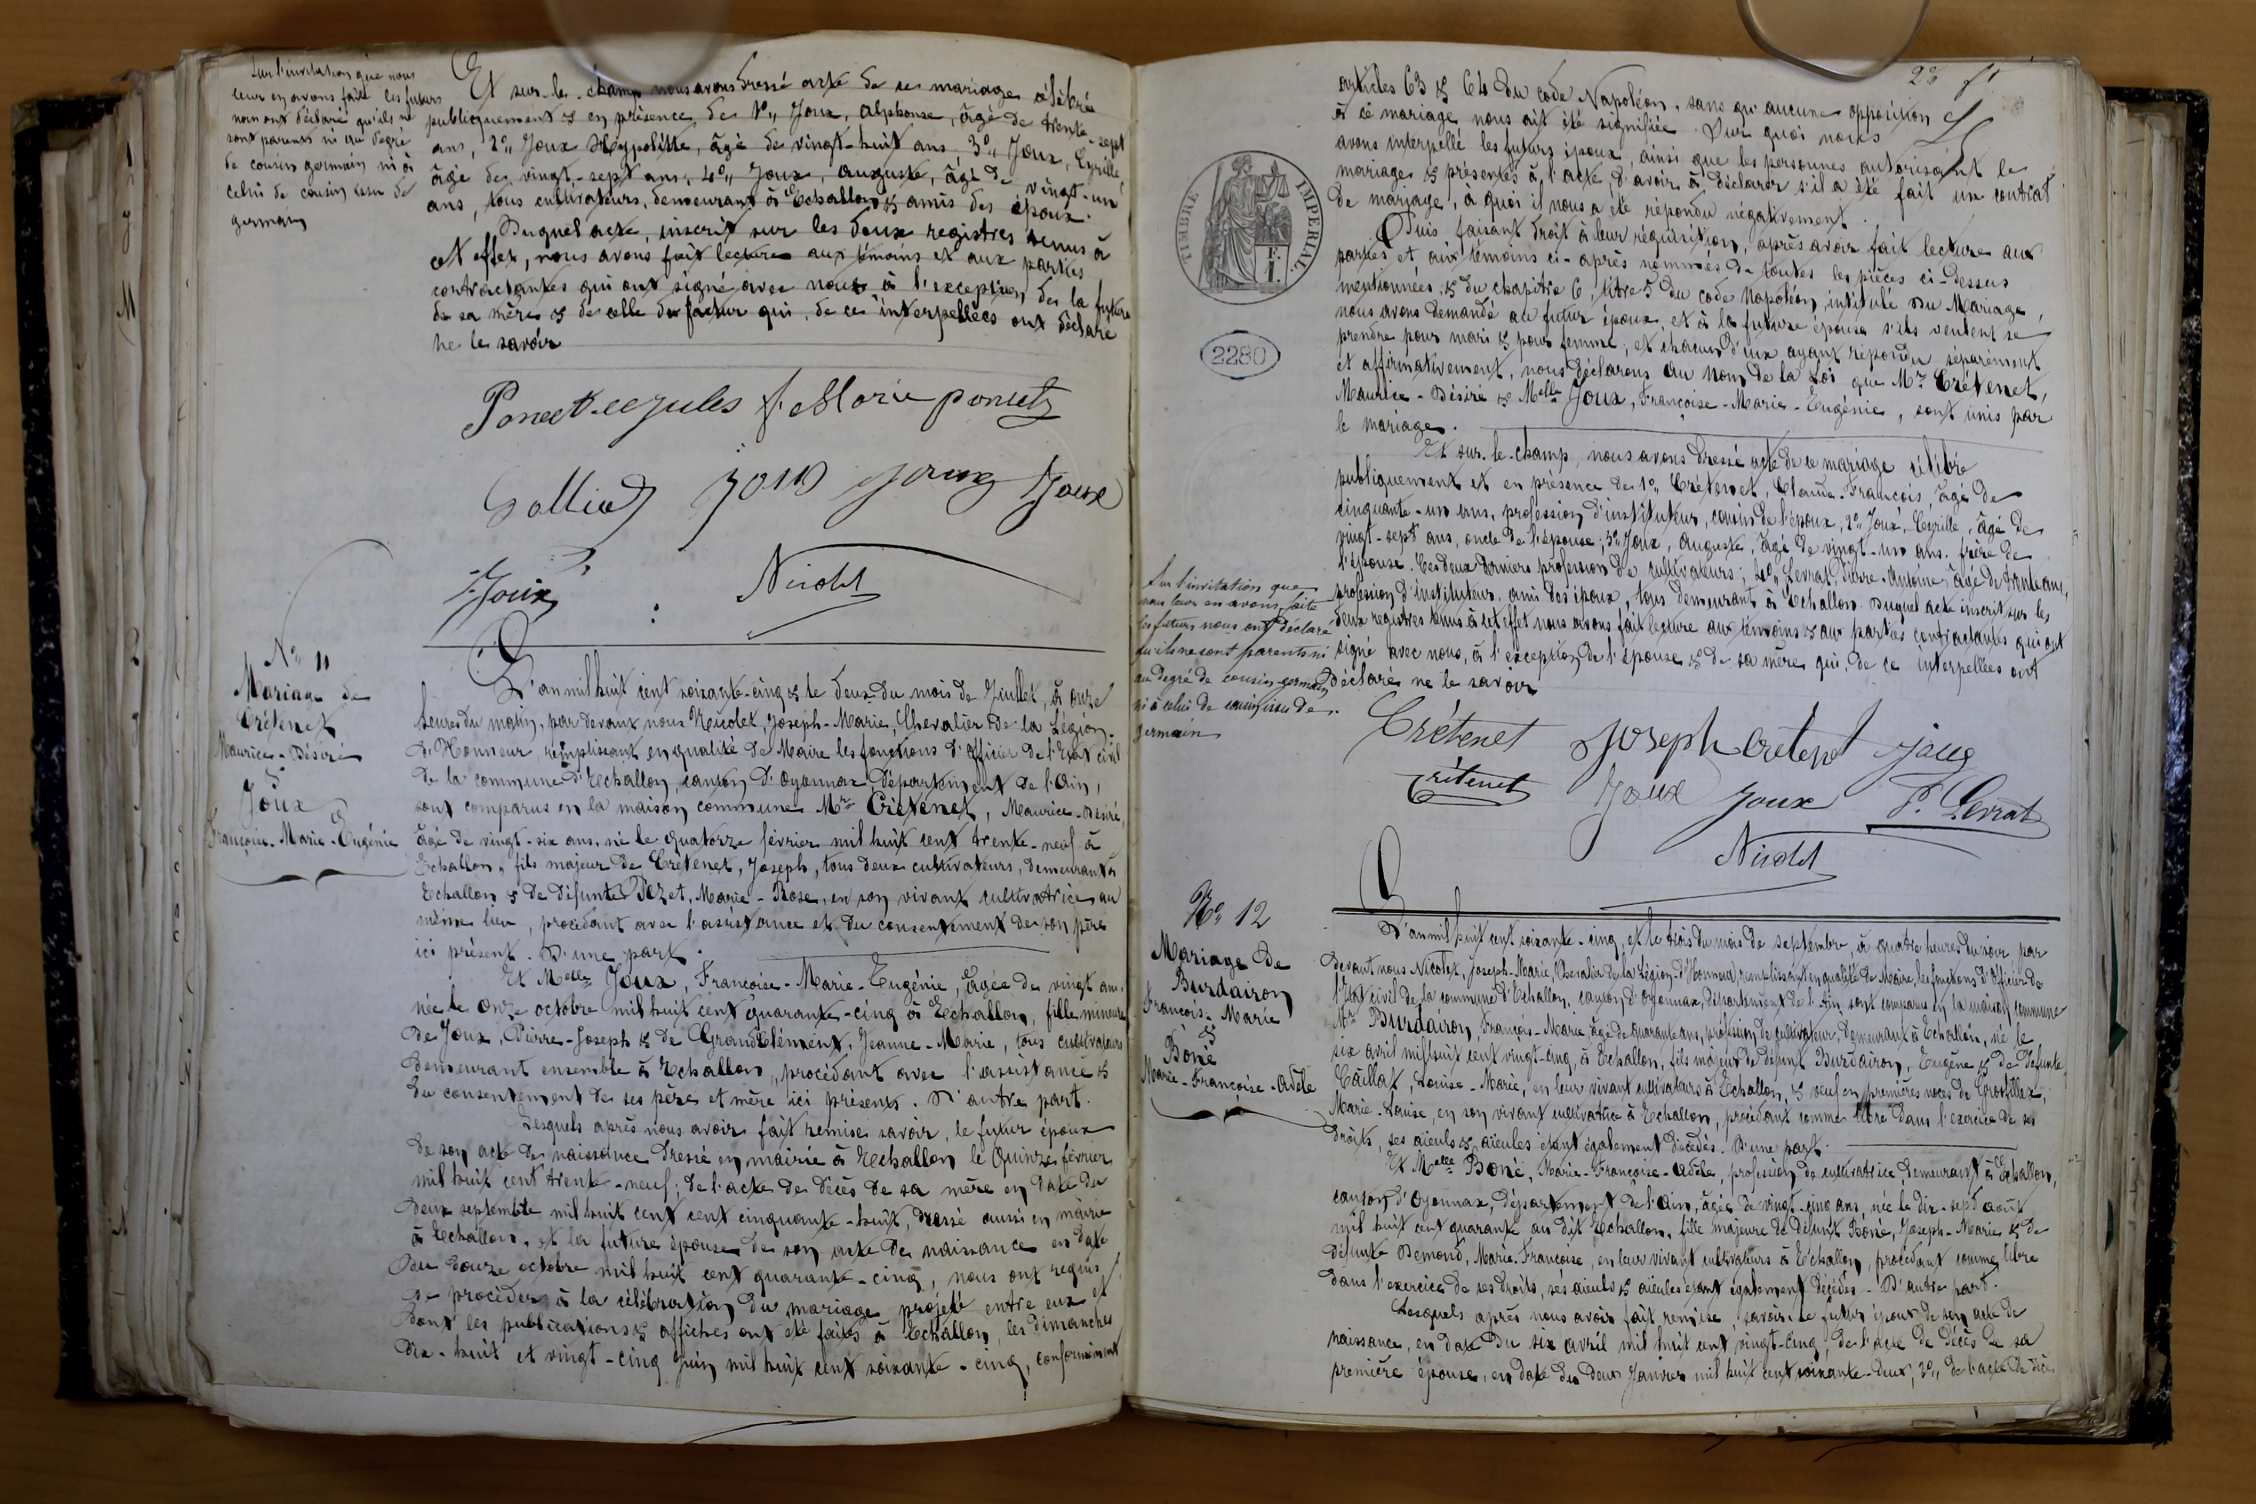 Sur l'invitation que nous
leur en avons faite les futurs
nous ont déclaré qu'ils ne
sont parents ni au degré
de cousin germain ni à
celui de cousin issu de
germain
Et sur-le-champ nous avons dressé acte de ce mariage célébré
publiquement & en présence de 1° Joux, Alphonse, âgé de trente-sept
ans, 2° Joux Hyppolitte, âgé de vingt-huit ans, 3° Joux, Cyrille,
âgé de vingt-sept ans, 4° Joux, Auguste, âgé de vingt-un
ans, tous cultivateurs, demeurant à Echallon & amis des époux.
Duquel acte, inscrit sur les deux registres tenus à
cet effet, nous avons fait lecture aux témoins et aux parties
contractantes qui ont signé avec nous à l'exception de la future
de sa mère & de celle du futur qui, de ce interpellées ont déclaré
ne le savoir
Joux Joux
Joux
Nicolet
N° 11
Mariage de
Crétenet
Maurice-Désiré
&
Joux
Françoise-Marie-Eugénie
L'an mil huit cent soixante-cinq & le deux du mois de Juillet, à onze
heures du matin, par devant nous Nicolet, Joseph-Marie, Chevalier de la Légion-
d'Honneur, remplissant en qualité de Maire les fonctions d'Officier de l'Etat civil
de la commune d'Echallon, canton d'Oyonnax, département de l'Ain,
sont comparus en la maison commune Mr Crétenet, Maurice-Désiré,
âgé de vingt-six ans, né le quatorze février mil huit cent trente-neuf à
Echallon, fils majeur de Crétenet, Joseph, tous deux cultivateurs, demeurant à
Echallon & de défunte Bozet, Marie-Rose, en son vivant cultivatrice au
même lieu, procédant avec l'assistance et du consentement de son père
ici présent. D'une part.
Et Melle Joux, Françoise-Marie-Eugénie, âgée de vingt ans,
née le onze octobre mil huit cent quarante-cinq à Echallon, fille mineure
de Joux, Pierre-Joseph & de Grandclément, Jeanne-Marie, tous cultivateurs
demeurant ensemble à Echallon, procédant avec l'assistance &
du consentement de ses père et mère ici présents. D'autre part.
Lesquels après nous avoir fait remise savoir, le futur époux
de son acte de naissance dressé en mairie à Echallon le quinze février
mil huit cent trente-neuf; de l'acte de décès de sa mère en date du
deux septembre mil huit cent cent cinquante-huit, dressé aussi en mairie
à Echallon, et la future épouse de son acte de naissance en date
du douze octobre mil huit cent quarante-cinq, nous ont requis
de procéder à la célébration du mariage projeté entre eux et
dont les publications & affiches ont été faites à Echallon, les dimanches
dix-huit et vingt-cinq juin mil huit cent soixante-cinq, conformément
TIMBRE IMPERIAL
2280
articles 63 & 64 du code Napoléon, sans qu'aucune opposition
à ce mariage nous ait été signifiée. Sur quoi nous
avons interpellé les futurs époux, ainsi que les personnes autorisant le
mariage & présentes à l'acte, d'avoir à déclarer s'il a été fait un contrat
de mariage, à quoi il nous a été répondu négativement.
Puis faisant droit à leur réquisition, après avoir fait lecture aux
parties et aux témoins ci-après nommés de toutes les pièces ci-dessus
mentionnées, & du chapitre 6, titre 5 du code Napoléon, intitulé du Mariage,
nous avons demandé au futur époux, et à la future épouse s'ils veulent se
prendre pour mari & pour femme, et chacun d'eux ayant répondu séparément
et affirmativement, nous déclarons au nom de la loi que Mr Crétenet,
Maurice-Désiré & Melle Joux, Françoise-Marie-Eugénie, sont unis par
le mariage.
Et sur-le-champ, nous avons dressé acte de ce mariage célébré
publiquement et en présence de 1° Crétenet, Claude-François, âgé de
cinquante-un ans, profession d'instituteur, cousin de l'époux, 2° Joux, Cyrille, âgé de
vingt-sept ans, oncle de l'épouse; 3° Joux, Auguste, âgé de vingt-un ans, frère de
l'épouse. Ces deux derniers profession de cultivateurs; 4° Levrat, Pierre-Antoine, âgé de trente ans,
profession d'instituteur, ami des époux, tous demeurant à Echallon. Duquel acte inscrit sur les
deux registres tenus à cet effet nous avons fait lecture aux témoins & aux parties contractantes qui ont
signé avec nous, à l'exception de l'épouse & de sa mère qui, de ce interpellées ont
déclaré ne le savoir
Sur l'invitation que
nous leur en avons faite
les futurs nous ont déclaré
qu'ils ne sont parents ni
au degré de cousin germain
ni à celui de cousin issu de
germain
Crétenet Joseph Crétenet Joux
Crétenet Joux Joux P. Levrat
Nicolet
N° 12
Mariage de
Burdairon
François-Marie
&
Boné
Marie-Françoise-Adèle
L'an mil huit cent soixante-cinq, et le trois du mois de septembre, à quatre heures du soir par
devant nous Nicolet, Joseph-Marie, Chevalier de la Légion-d'Honneur, remplissant en qualité de Maire, les fonctions d'Officier de
l'Etat civil de la commune d'Echallon, canton d'Oyonnax, département de l'Ain, sont comparus en la maison commune
Mr Burdairon, François-Marie âgé de quarante ans, profession de cultivateur, demeurant à Echallon, né le
six avril mil huit cent vingt-cinq, à Echallon, fils majeur de défunt Burdairon, Eugène & de défunte
Caillat, Louise-Marie, en leur vivant cultivateurs à Echallon, & veuf en premières noces de Grosfillex,
Marie-Louise, en son vivant cultivatrice à Echallon, procédant comme libre dans l'exercice de ses
droits, ses aïeuls & aïeules étant également décédés. D'une part.
Et Melle Boné, Marie-Françoise-Adèle, profession de cultivatrice, demeurant à Echallon,
canton d'Oyonnax, département de l'Ain, âgée de vingt-cinq ans, née le dix-sept août
mil huit cent quarante au dit Echallon, fille majeure de défunt Boné, Joseph-Marie & de
défunte Demond, Marie-Françoise, en leur vivant cultivateurs à Echallon, procédant comme libre
dans l'exercice de ses droits, ses aïeuls & aïeules étant également décédés. D'autre part.
Lesquels après nous avoir fait remise, savoir: le futur époux de son acte de
naissance, en date du six avril mil huit cent vingt-cinq, de l'acte de décès de sa
première épouse, en date du deux Janvier mil huit cent soixante-deux, 2° de l'acte de décès